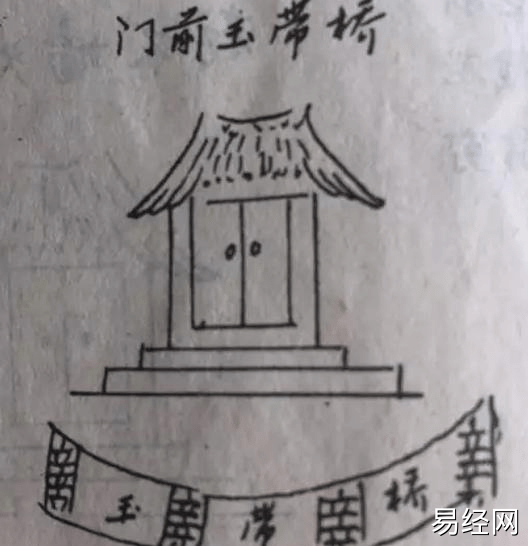 门前玉带桥
玉 带 桥
易经网